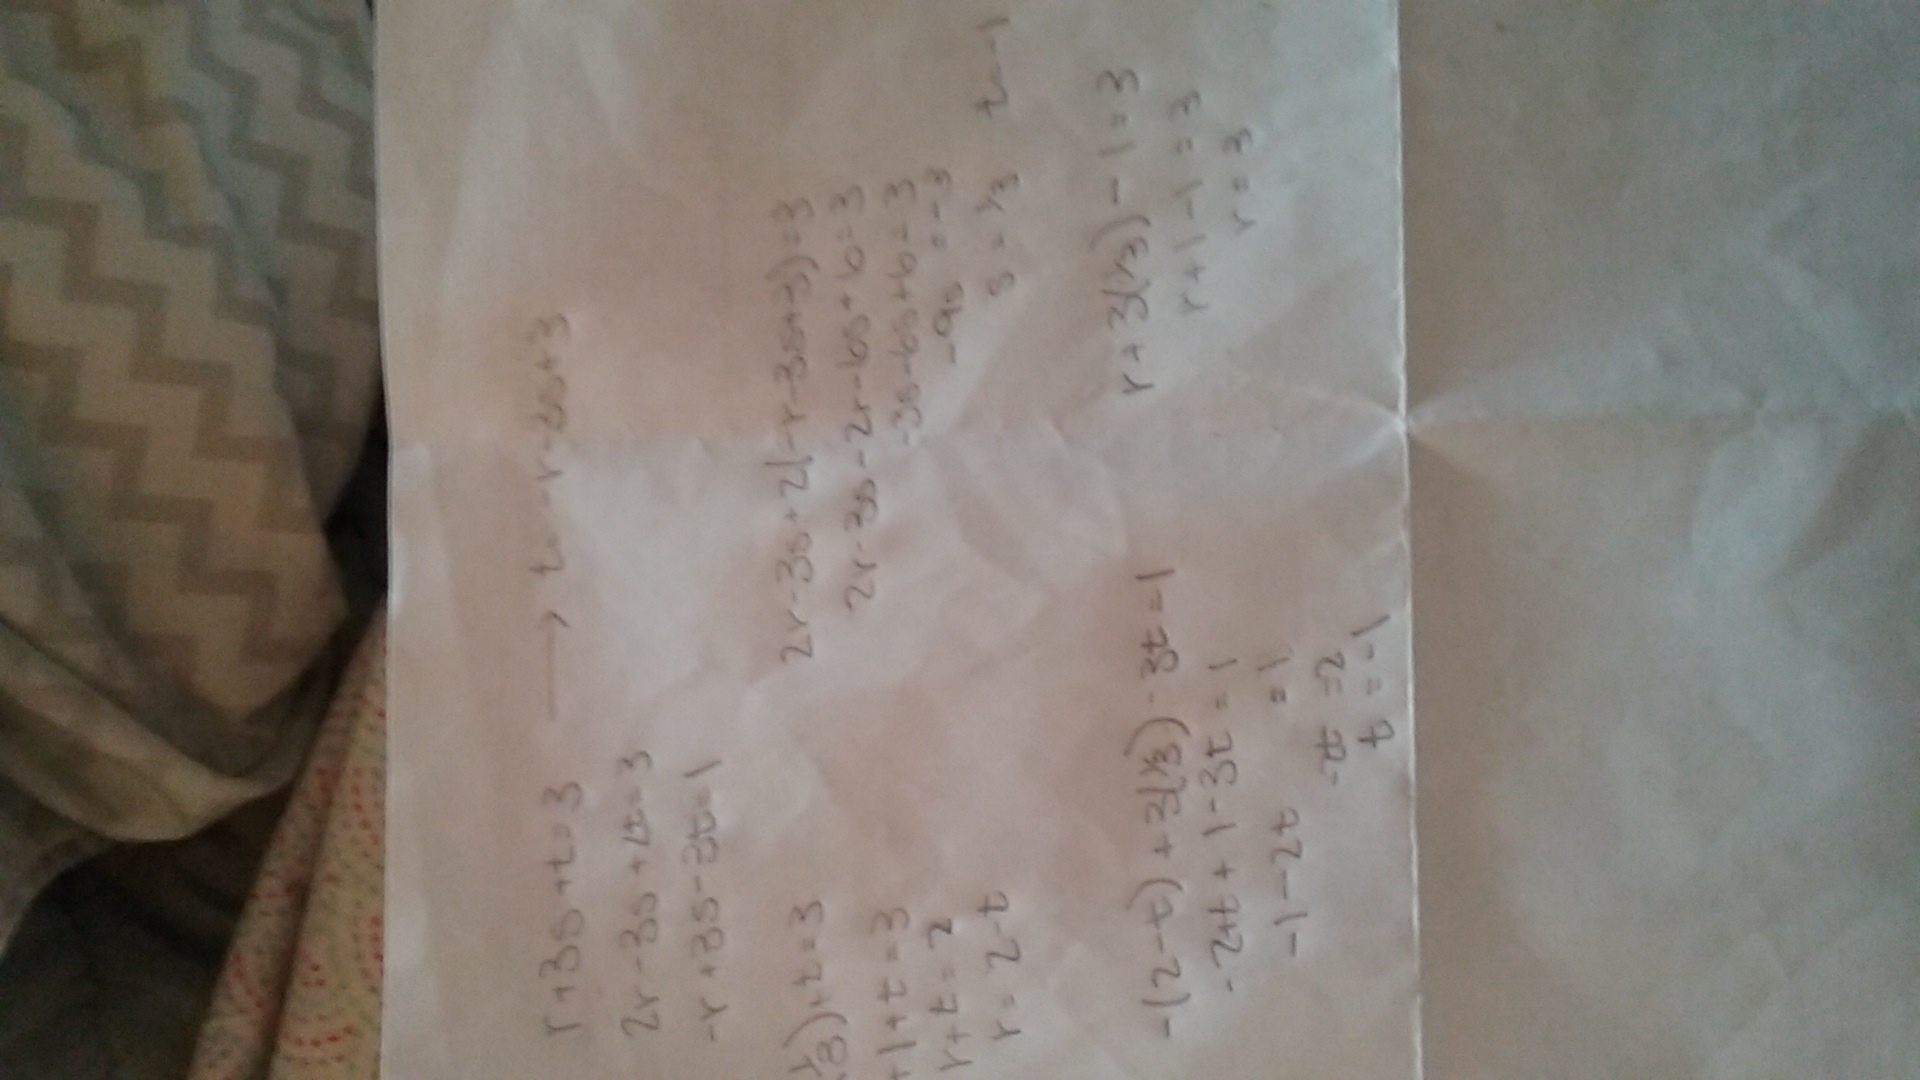 r+3s+t=3 → t=-r-3s+3
2r-3s+2t=3
-r+3s-3t=1
2r-3s+2(-r-3s+3)=3
2r-3s-2r-6s+6=3
-3s-6s+6=3
-9s=-3
s=1/3 t=-1
1/3)+t=3
+1+t=3
r+t=2
r=2-t
-(2-t)+3(1/3)-3t=1
-2+t+1-3t=1
-1-2t=1
-2t=2
t=-1
r+3(1/3)-1=3
r+1-1=3
r=3